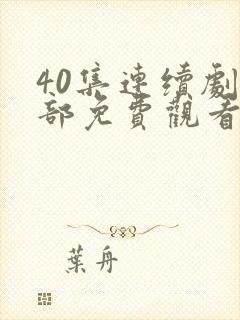 40集連續劇
部免費觀看
葉舟